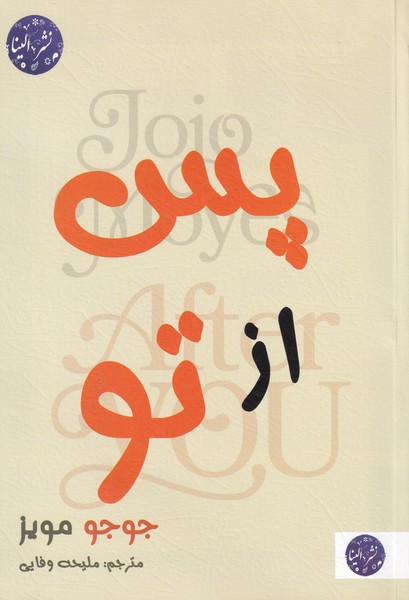 نشر الینا
Jojo
Moyes
پس
از
After
تو
YOU
جوجو مویز
مترجم: ملیحه وفایی
نشر الینا